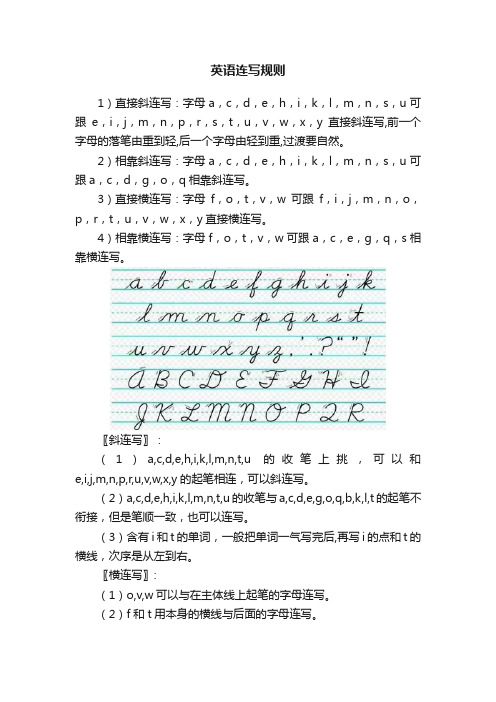 英语连写规则
1）直接斜连写：字母a，c，d，e，h，i，k，l，m，n，s，u可
跟e，i，j，m，n，p，r，s，t，u，v，w，x，y直接斜连写,前一个
字母的落笔由重到轻,后一个字母由轻到重,过渡要自然。
2）相靠斜连写：字母a，c，d，e，h，i，k，l，m，n，s，u可
跟a，c，d，g，o，q相靠斜连写。
3）直接横连写：字母f，o，t，v，w可跟f，i，j，m，n，o，
p，r，t，u，v，w，x，y直接横连写。
4）相靠横连写：字母f，o，t，v，w可跟a，c，e，g，q，s相
靠横连写。
a b c d e f g h i j k
l m n o p q r s t
u v w x y z . ’ . ? “ ” !
A B C D E F G H I
J K L M N O P Q R
〖斜连写〗：
（1）a,c,d,e,h,i,k,l,m,n,t,u的收笔上挑，可以和
e,i,j,m,n,p,r,u,v,w,x,y的起笔相连，可以斜连写。
（2）a,c,d,e,h,i,k,l,m,n,t,u的收笔与a,c,d,e,g,o,q,b,k,l,t的起笔不
衔接，但是笔顺一致，也可以连写。
（3）含有i和t的单词，一般把单词一气写完后,再写i的点和t的
横线，次序是从左到右。
〖横连写〗:
（1）o,v,w可以与在主体线上起笔的字母连写。
（2）f和t用本身的横线与后面的字母连写。